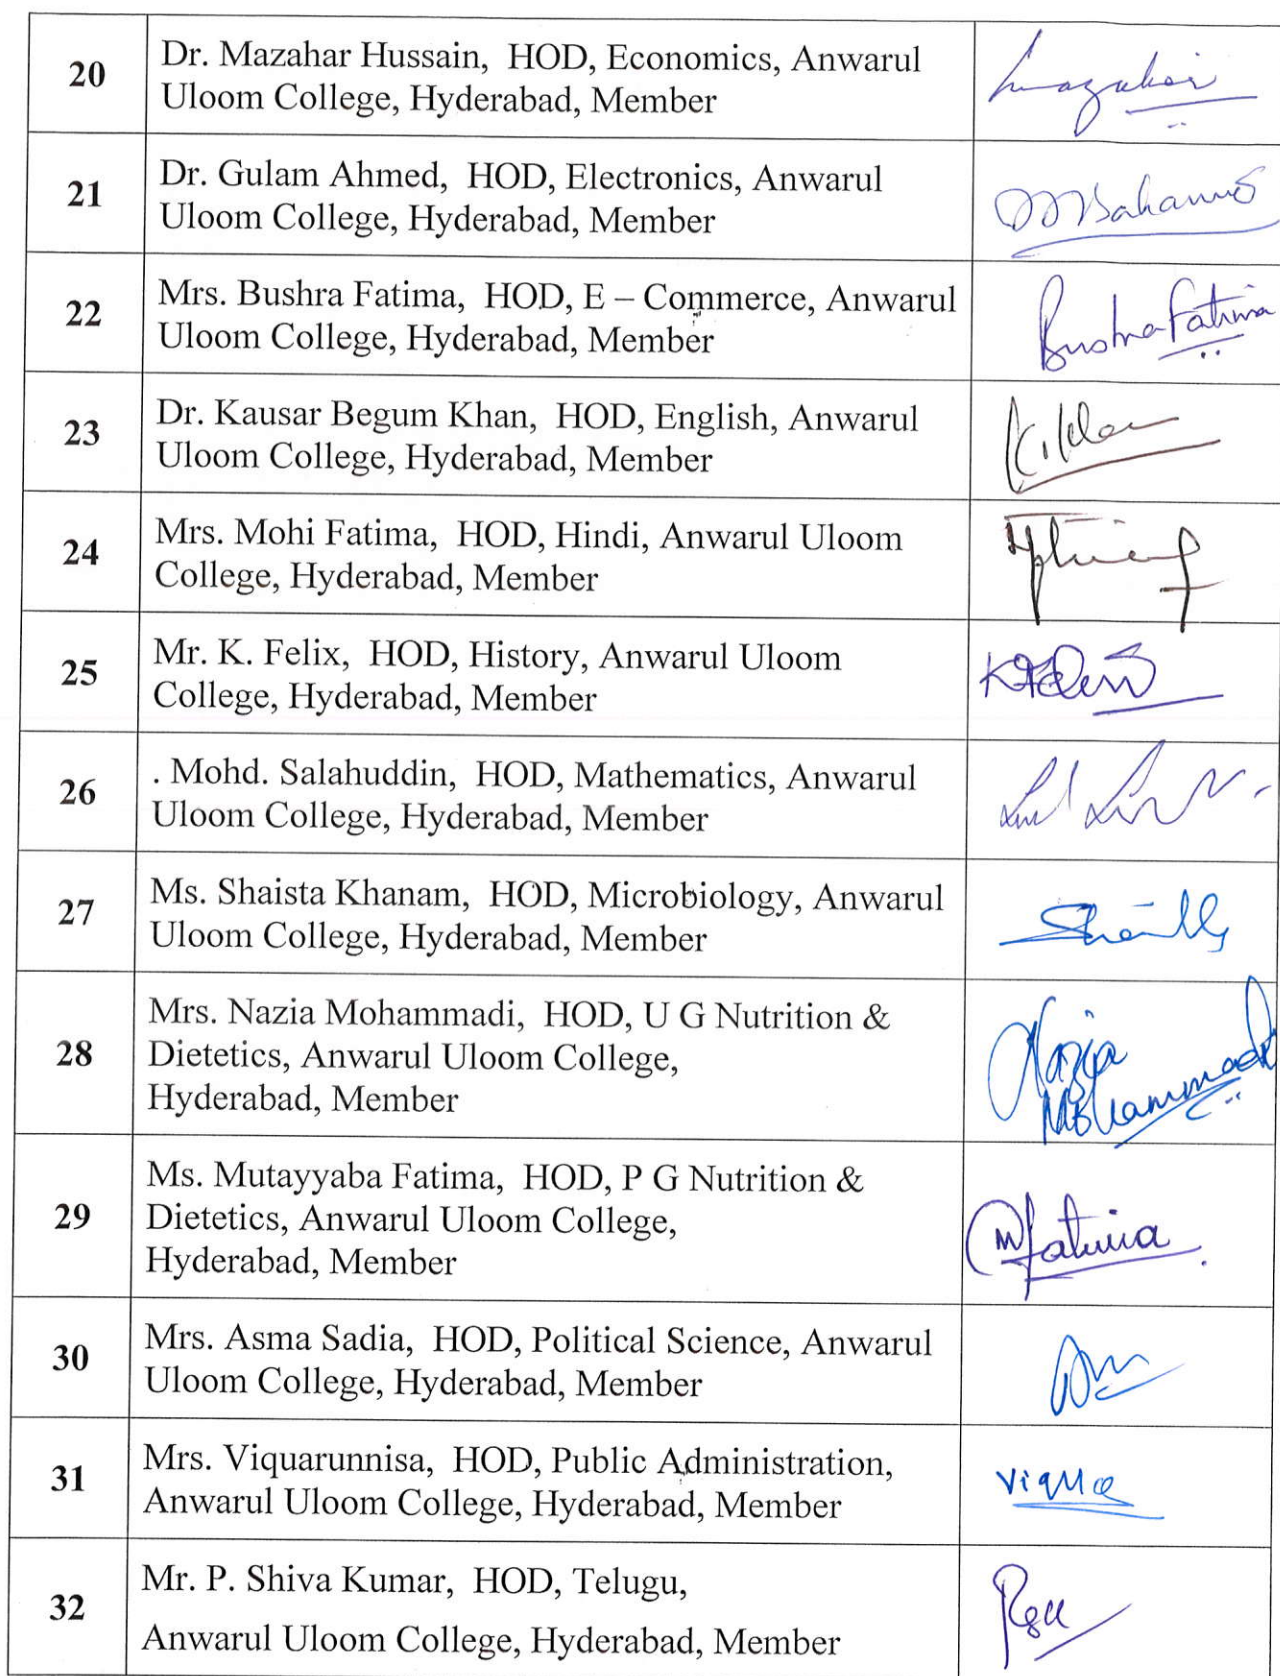 20
Dr. Mazahar Hussain, HOD, Economics, Anwarul
Uloom College, Hyderabad, Member
21
Dr. Gulam Ahmed, HOD, Electronics, Anwarul
Uloom College, Hyderabad, Member
22
Mrs. Bushra Fatima, HOD, E – Commerce, Anwarul
Uloom College, Hyderabad, Member
Bushra Fatima
23
Dr. Kausar Begum Khan, HOD, English, Anwarul
Uloom College, Hyderabad, Member
24
Mrs. Mohi Fatima, HOD, Hindi, Anwarul Uloom
College, Hyderabad, Member
25
Mr. K. Felix, HOD, History, Anwarul Uloom
College, Hyderabad, Member
26
. Mohd. Salahuddin, HOD, Mathematics, Anwarul
Uloom College, Hyderabad, Member
27
Ms. Shaista Khanam, HOD, Microbiology, Anwarul
Uloom College, Hyderabad, Member
28
Mrs. Nazia Mohammadi, HOD, U G Nutrition &
Dietetics, Anwarul Uloom College,
Hyderabad, Member
Nazia
Mohammadi
29
Ms. Mutayyaba Fatima, HOD, P G Nutrition &
Dietetics, Anwarul Uloom College,
Hyderabad, Member
MFatima
30
Mrs. Asma Sadia, HOD, Political Science, Anwarul
Uloom College, Hyderabad, Member
31
Mrs. Viquarunnisa, HOD, Public Administration,
Anwarul Uloom College, Hyderabad, Member
32
Mr. P. Shiva Kumar, HOD, Telugu,
Anwarul Uloom College, Hyderabad, Member